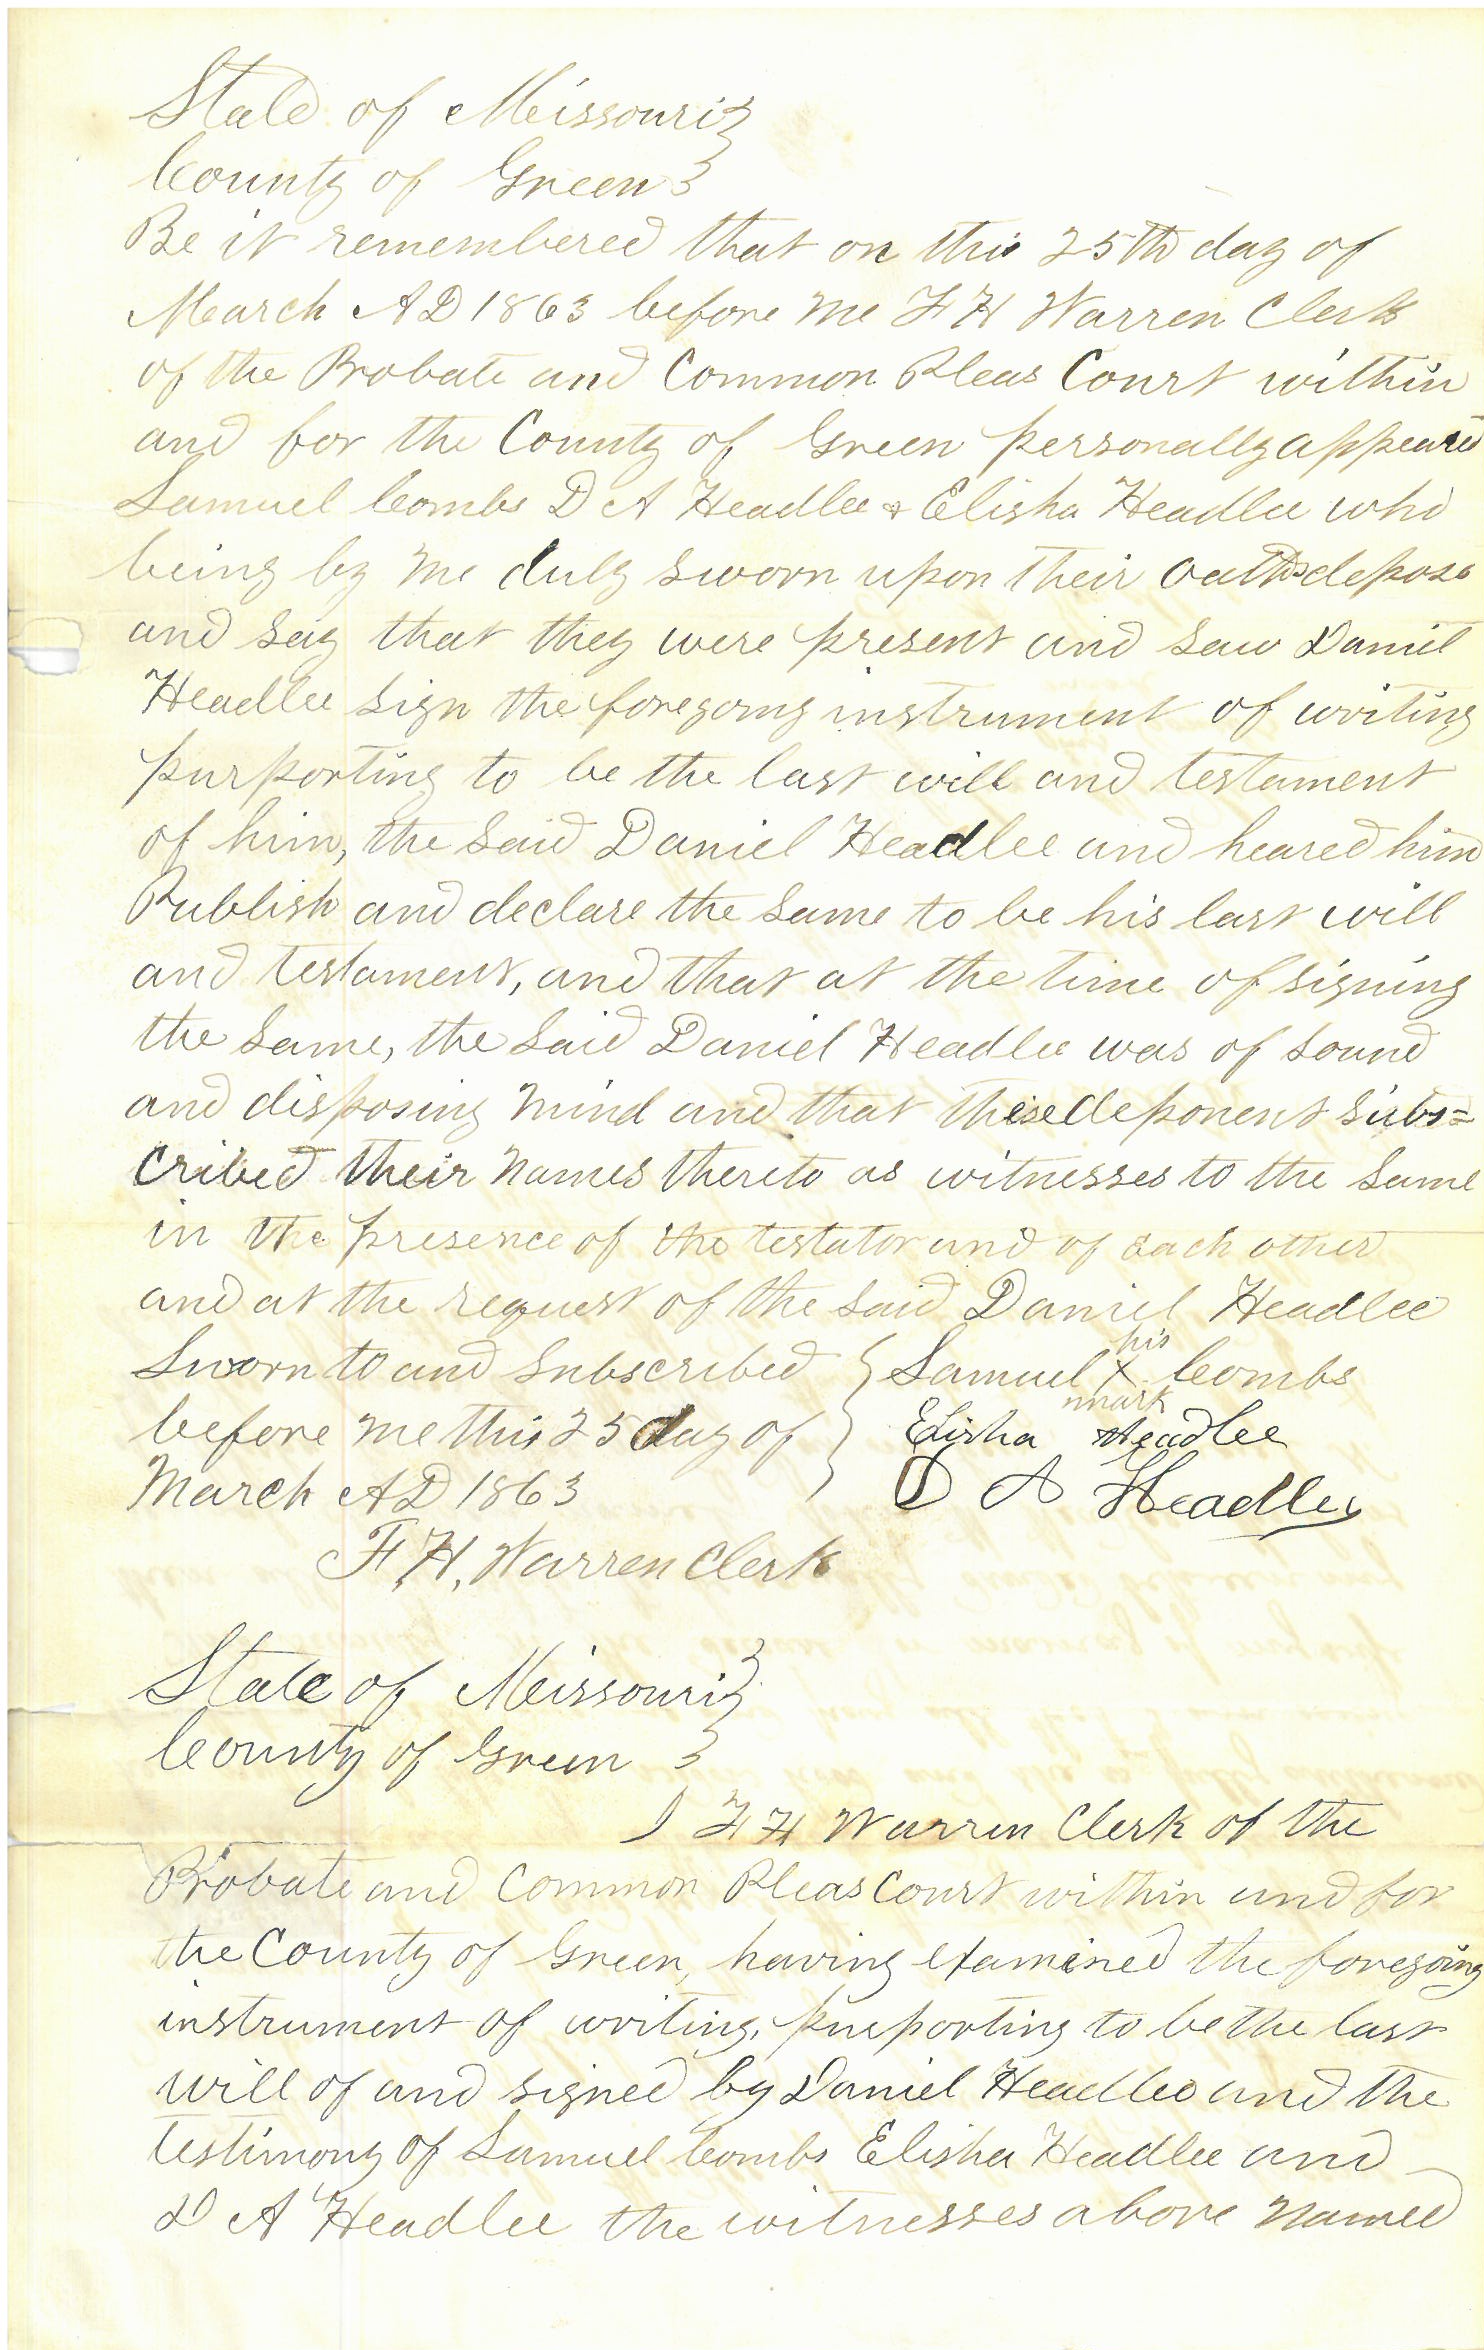 State of Missouri }
County of Green }
Be it remembered that on this 25th day of
March AD 1863 before me F H Warren Clerk
of the Probate and Common Pleas Court within
and for the County of Green personally appeared
Samuel Combs D A Headlee & Elisha Headlee who
being by me duly sworn upon their oaths depose
and say that they were present and saw Daniel
Headlee sign the foregoing instrument of writing
purporting to be the last will and testament
of him, the said Daniel Headlee and heared him
Publish and declare the same to be his last will
and testament, and that at the time of signing
the same, the said Daniel Headlee was of sound
and disposing mind and that these deponent subs=
cribed their names thereto as witnesses to the same
in the presence of the testator and of each other
and at the request of the said Daniel Headlee
Sworn to and subscribed } Samuel his X mark Combs
before me this 25 day of } Elisha Headlee
March AD 1863 } D A Headlee
F. H. Warren Clerk
State of Missouri }
County of Green }
I F H Warren Clerk of the
Probate and Common Pleas Court within and for
the County of Green, having examined the foregoing
instrument of writing, purporting to be the last
will of and signed by Daniel Headlee and the
testimony of Samuel Combs Elisha Headlee and
D A Headlee the witnesses above named